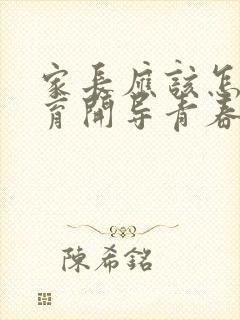 家長應該怎
育開导青春
陳希銘